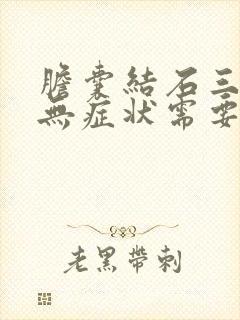 膽囊結石三
無症狀需要
老黑帶刺